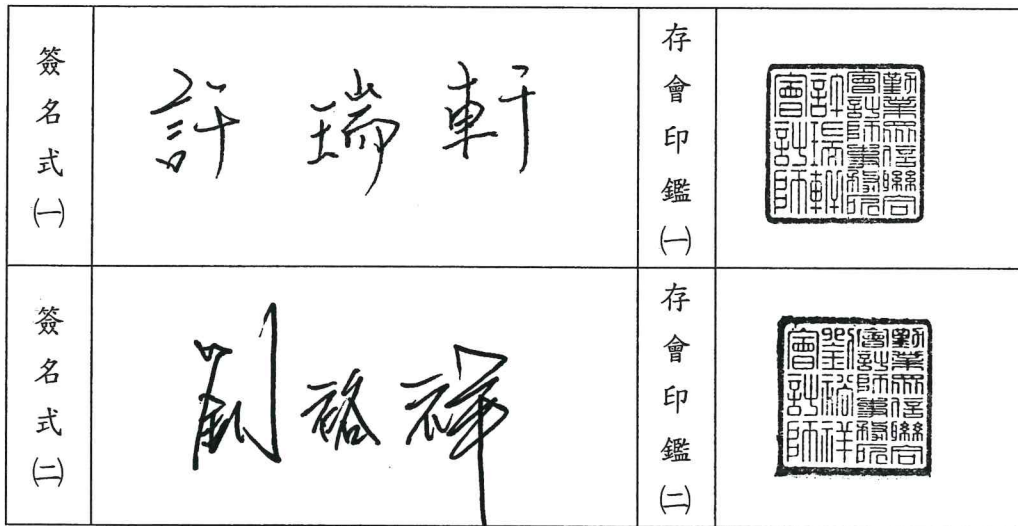 簽名式(一)
許瑞軒
存會印鑑(一)
勤業眾信聯合
會計師事務所
許瑞軒
會計師
簽名式(二)
劉裕祥
存會印鑑(二)
勤業眾信聯合
會計師事務所
劉裕祥
會計師